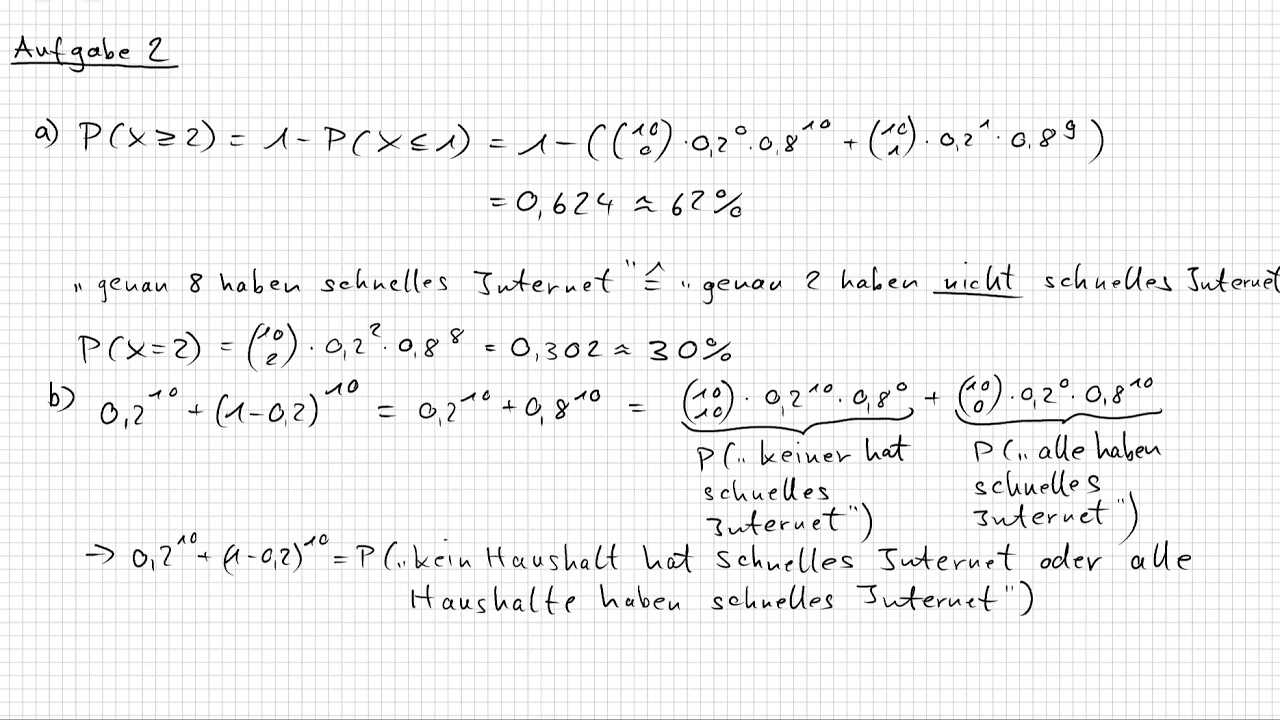 Aufgabe 2
a) P(X ≥ 2) = 1 - P(X ≤ 1) = 1 - ((10 0) · 0,2⁰ · 0,8¹⁰ + (10 1) · 0,2¹ · 0,8⁹)
= 0,624 ≈ 62%
„genau 8 haben schnelles Internet" ≙ „genau 2 haben nicht schnelles Internet
P(X=2) = (10 2) · 0,2² · 0,8⁸ = 0,302 ≈ 30%
b) 0,2¹⁰ + (1-0,2)¹⁰ = 0,2¹⁰ + 0,8¹⁰ = (10 10) · 0,2¹⁰ · 0,8⁰ + (10 0) · 0,2⁰ · 0,8¹⁰
P(„keiner hat
schnelles
Internet")
P(„alle haben
schnelles
Internet")
→ 0,2¹⁰ + (1-0,2)¹⁰ = P(„kein Haushalt hat schnelles Internet oder alle
Haushalte haben schnelles Internet")